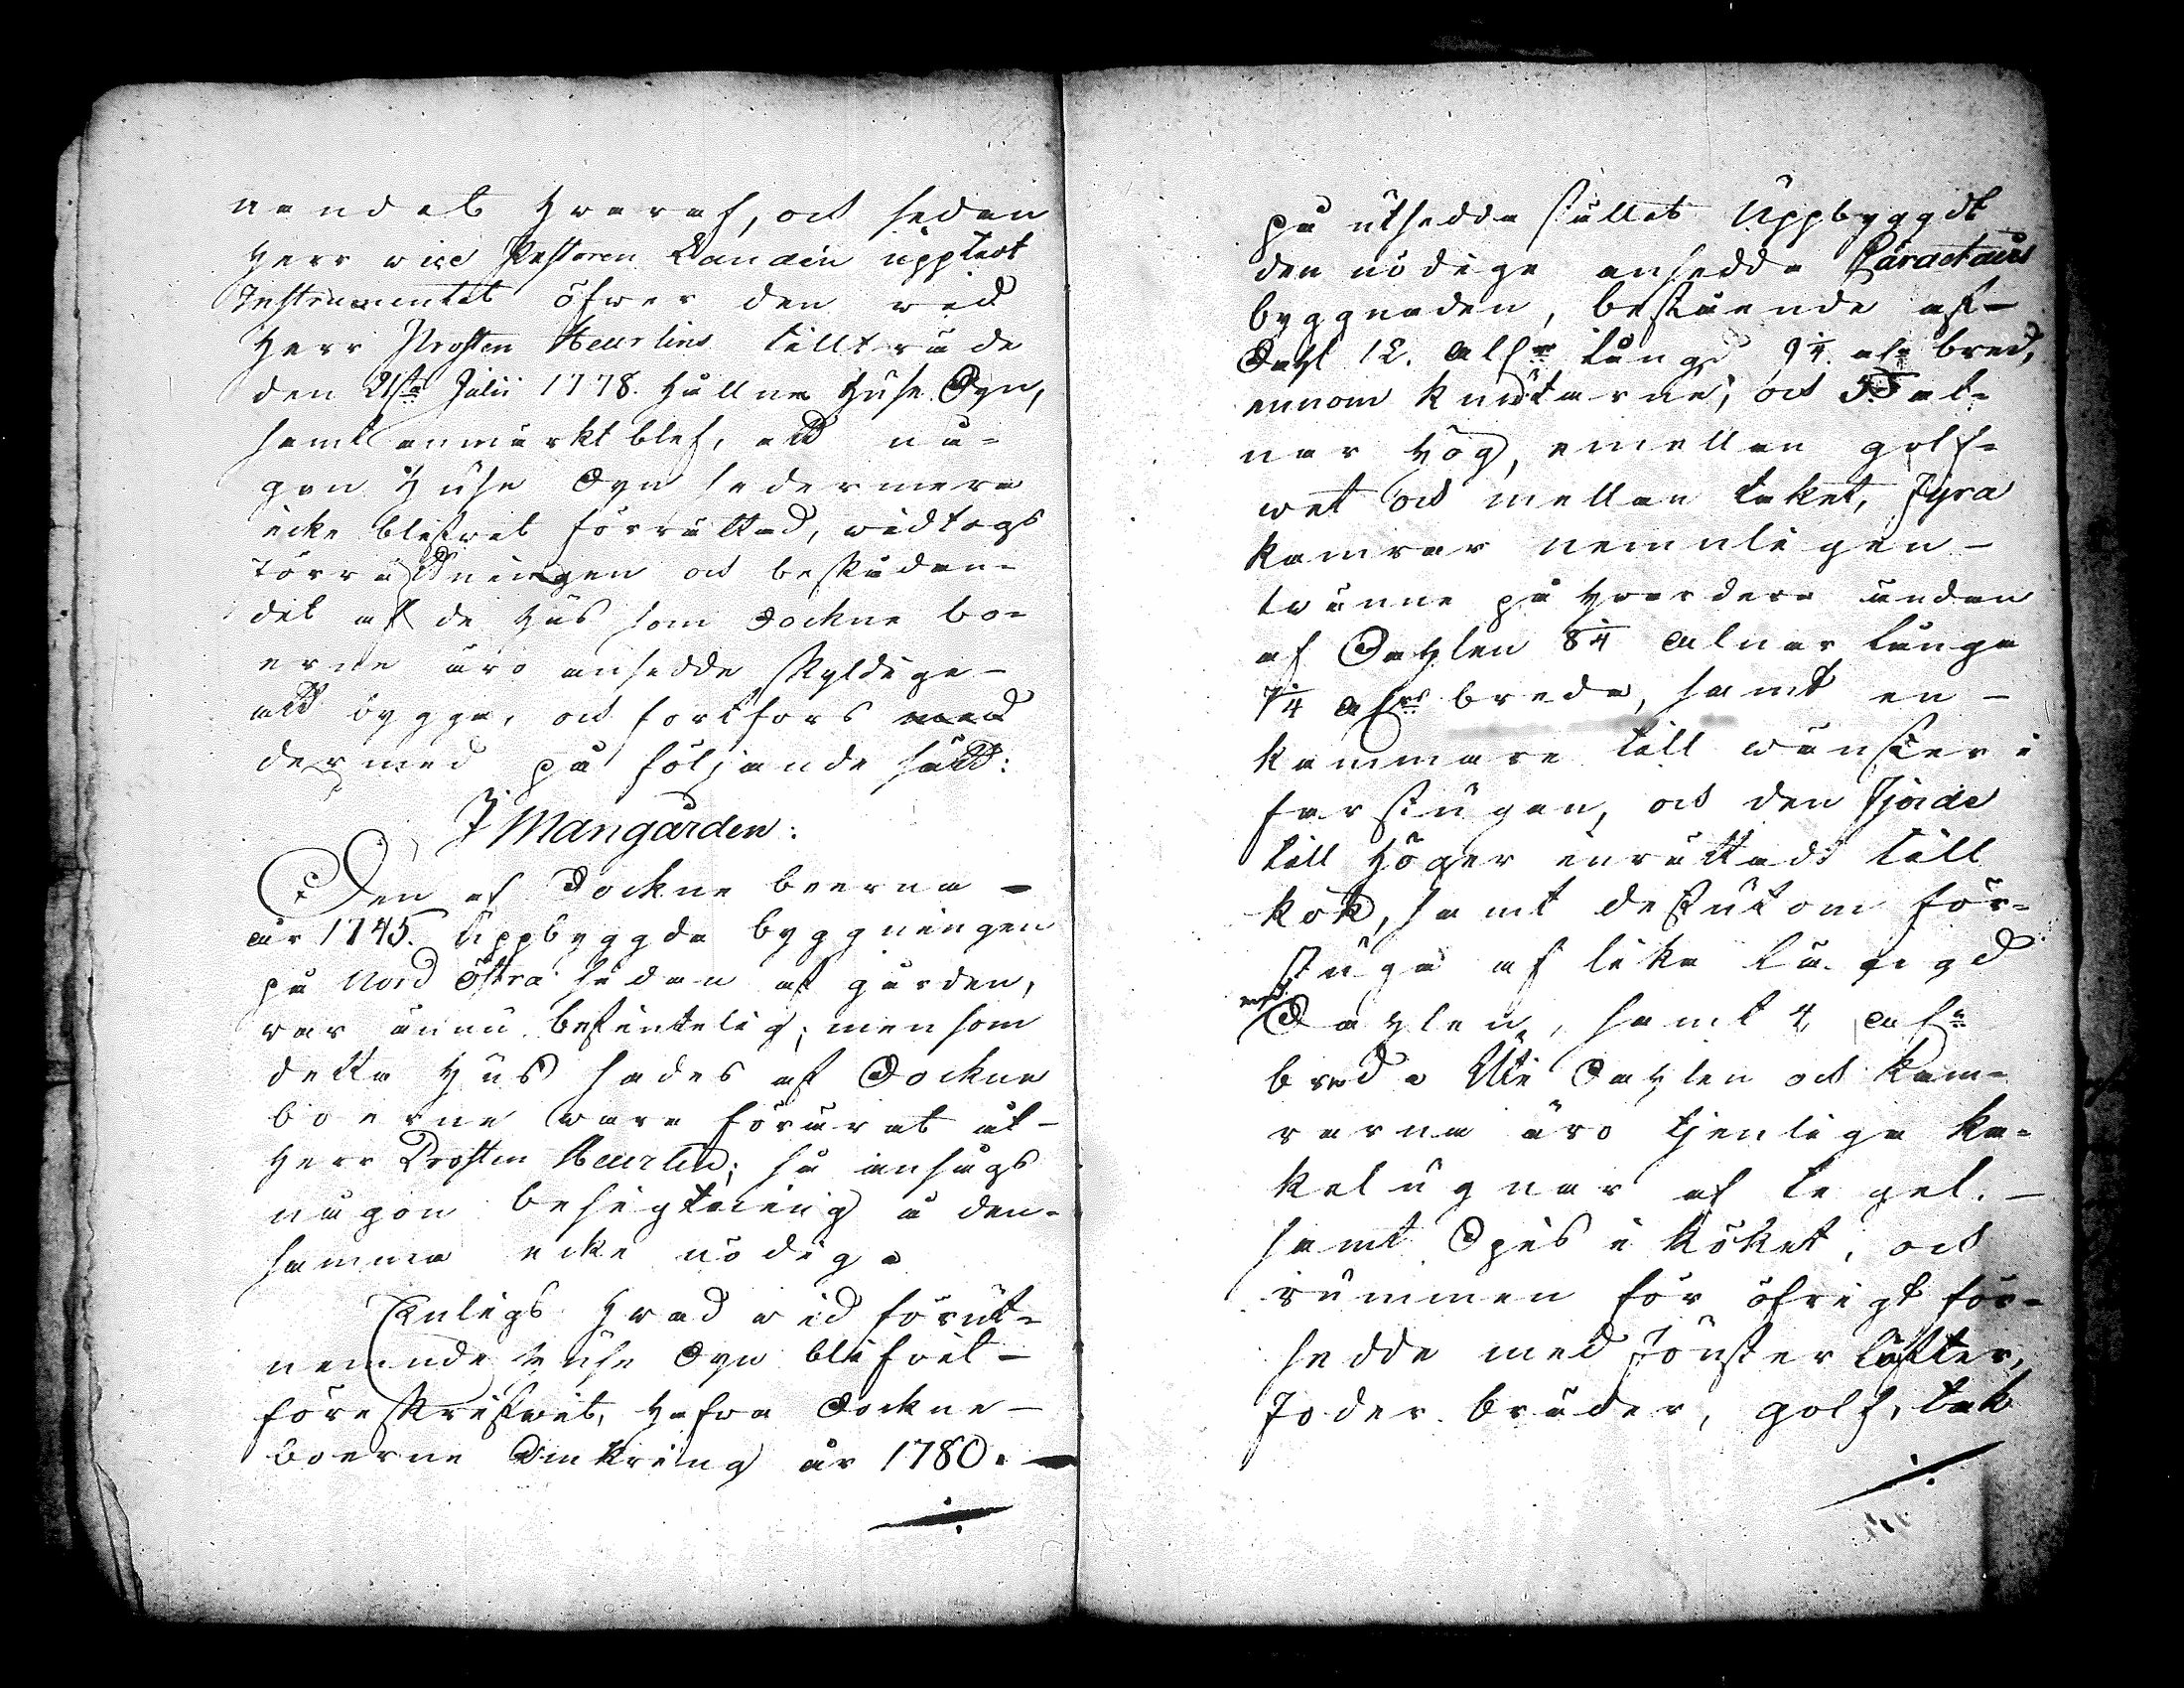 nandet hwaraf, och sedan
Herr vice Pastoren Landin upplast
Instrumentet öfwer den wid
Herr Prosten Heurlins tillträde
den 21sta Julii 1778. hållne Huse Syn,
samt anmärkt blef, att nå-
gon Huse Syn sedermera
icke blifwit förrättad, widtogs
Förrättningen och beskådan-
det af de hus som Sockne bo-
erne äro ansedde skyldige -
att bygga, och fortfors
dermed på följande sätt:
I Mangården:
Den af Sockne boerna -
år 1745. uppbyggda byggningen
på Nord Östra sidan af gården,
var ännu befintelig; men som
detta Hus sades af Sockne
boerne vara förärat åt -
Herr Prosten Heurlin; så ansågs
någon besigtning å den-
samma icke nödig.
Enligt hwad wid förut-
nemnde Huse Syn blifvit -
föreskrifwit, hafva Sockne -
boerne omkring år 1780. -
på utsedda stället Uppbyggdt
den nödige ansedda Caractairs
byggnaden, bestående af -
Sahl 12. Alnr lång 9¼. aln bred,
innom knutarne, och 5 al-
nar hög, emellan golf-
wet och mellan taket, Fyra
kamrar nemnligen -
twänne på hwardera ändan
af Sahlen 8¼ alnar långa
7¼ alnr breda, samt en -
kammare till wänster i
farstugan, och den fjerde
till höger inrättadt till
kök, samt dessutom för-
stuga af lika längd
med
Sahlen, samt 4 aln
bred. Uti Sahlen och Kam-
rarna äro tjenliga ka-
kelugnar af tegel. -
samt Spis i Köket, och
rummen för öfrigt för-
sedde med Fönster lufter,
Foder bräder, golf, tak